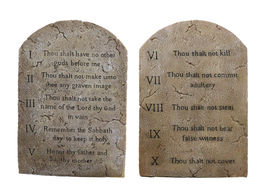 I
Thou shalt have no other
gods before me
II
Thou shalt not make unto
thee any graven image
III
Thou shalt not take the
name of the Lord thy God
in vain
IV
Remember the Sabbath
day to keep it holy
V
Honor thy father and
thy mother
VI
Thou shalt not kill
VII
Thou shalt not commit
adultery
VIII
Thou shalt not steal
IX
Thou shalt not bear
false witness
X
Thou shalt not covet